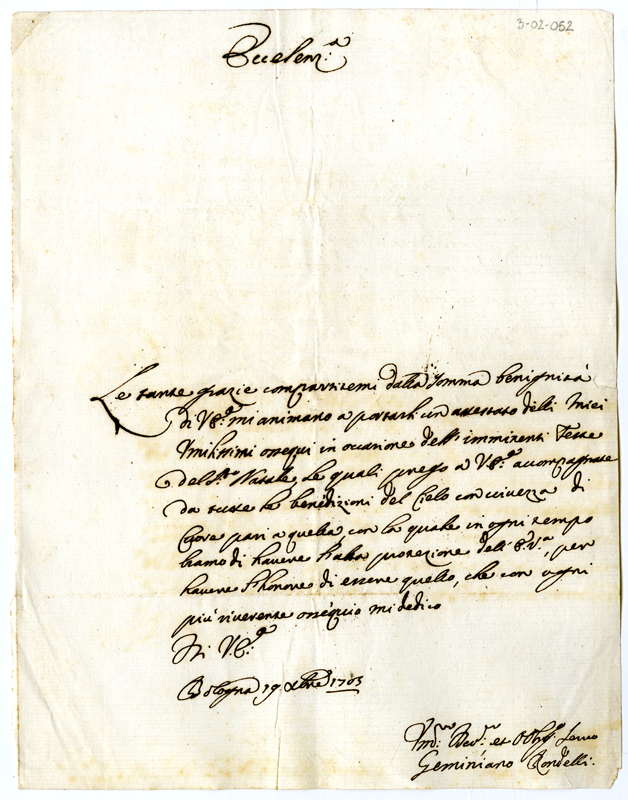 3-02-052
Eccelenz:a
Le tante grazie compartitemi dalla somma benignità
di V.E.a mi animano a portarli un attestato delli Miei
Umilissimi ossequi in occasione dell'imminenti Feste
del S.to Natale, le quali prego a V.E.a accompagnate
da tutte le benedizioni del Cielo con vivezza di
Cuore pari a quella, con la quale in ogni tempo
bramo di havere l'alta protezione dell'E.V.a, per
havere l'honore di essere quello, che con ogni
più riverente ossequio mi dedico
Di V.E.a
Bologna 19 Xbre 1703
Um:mo Dev:mo et Obbg:o Servo
Geminiano Rondelli